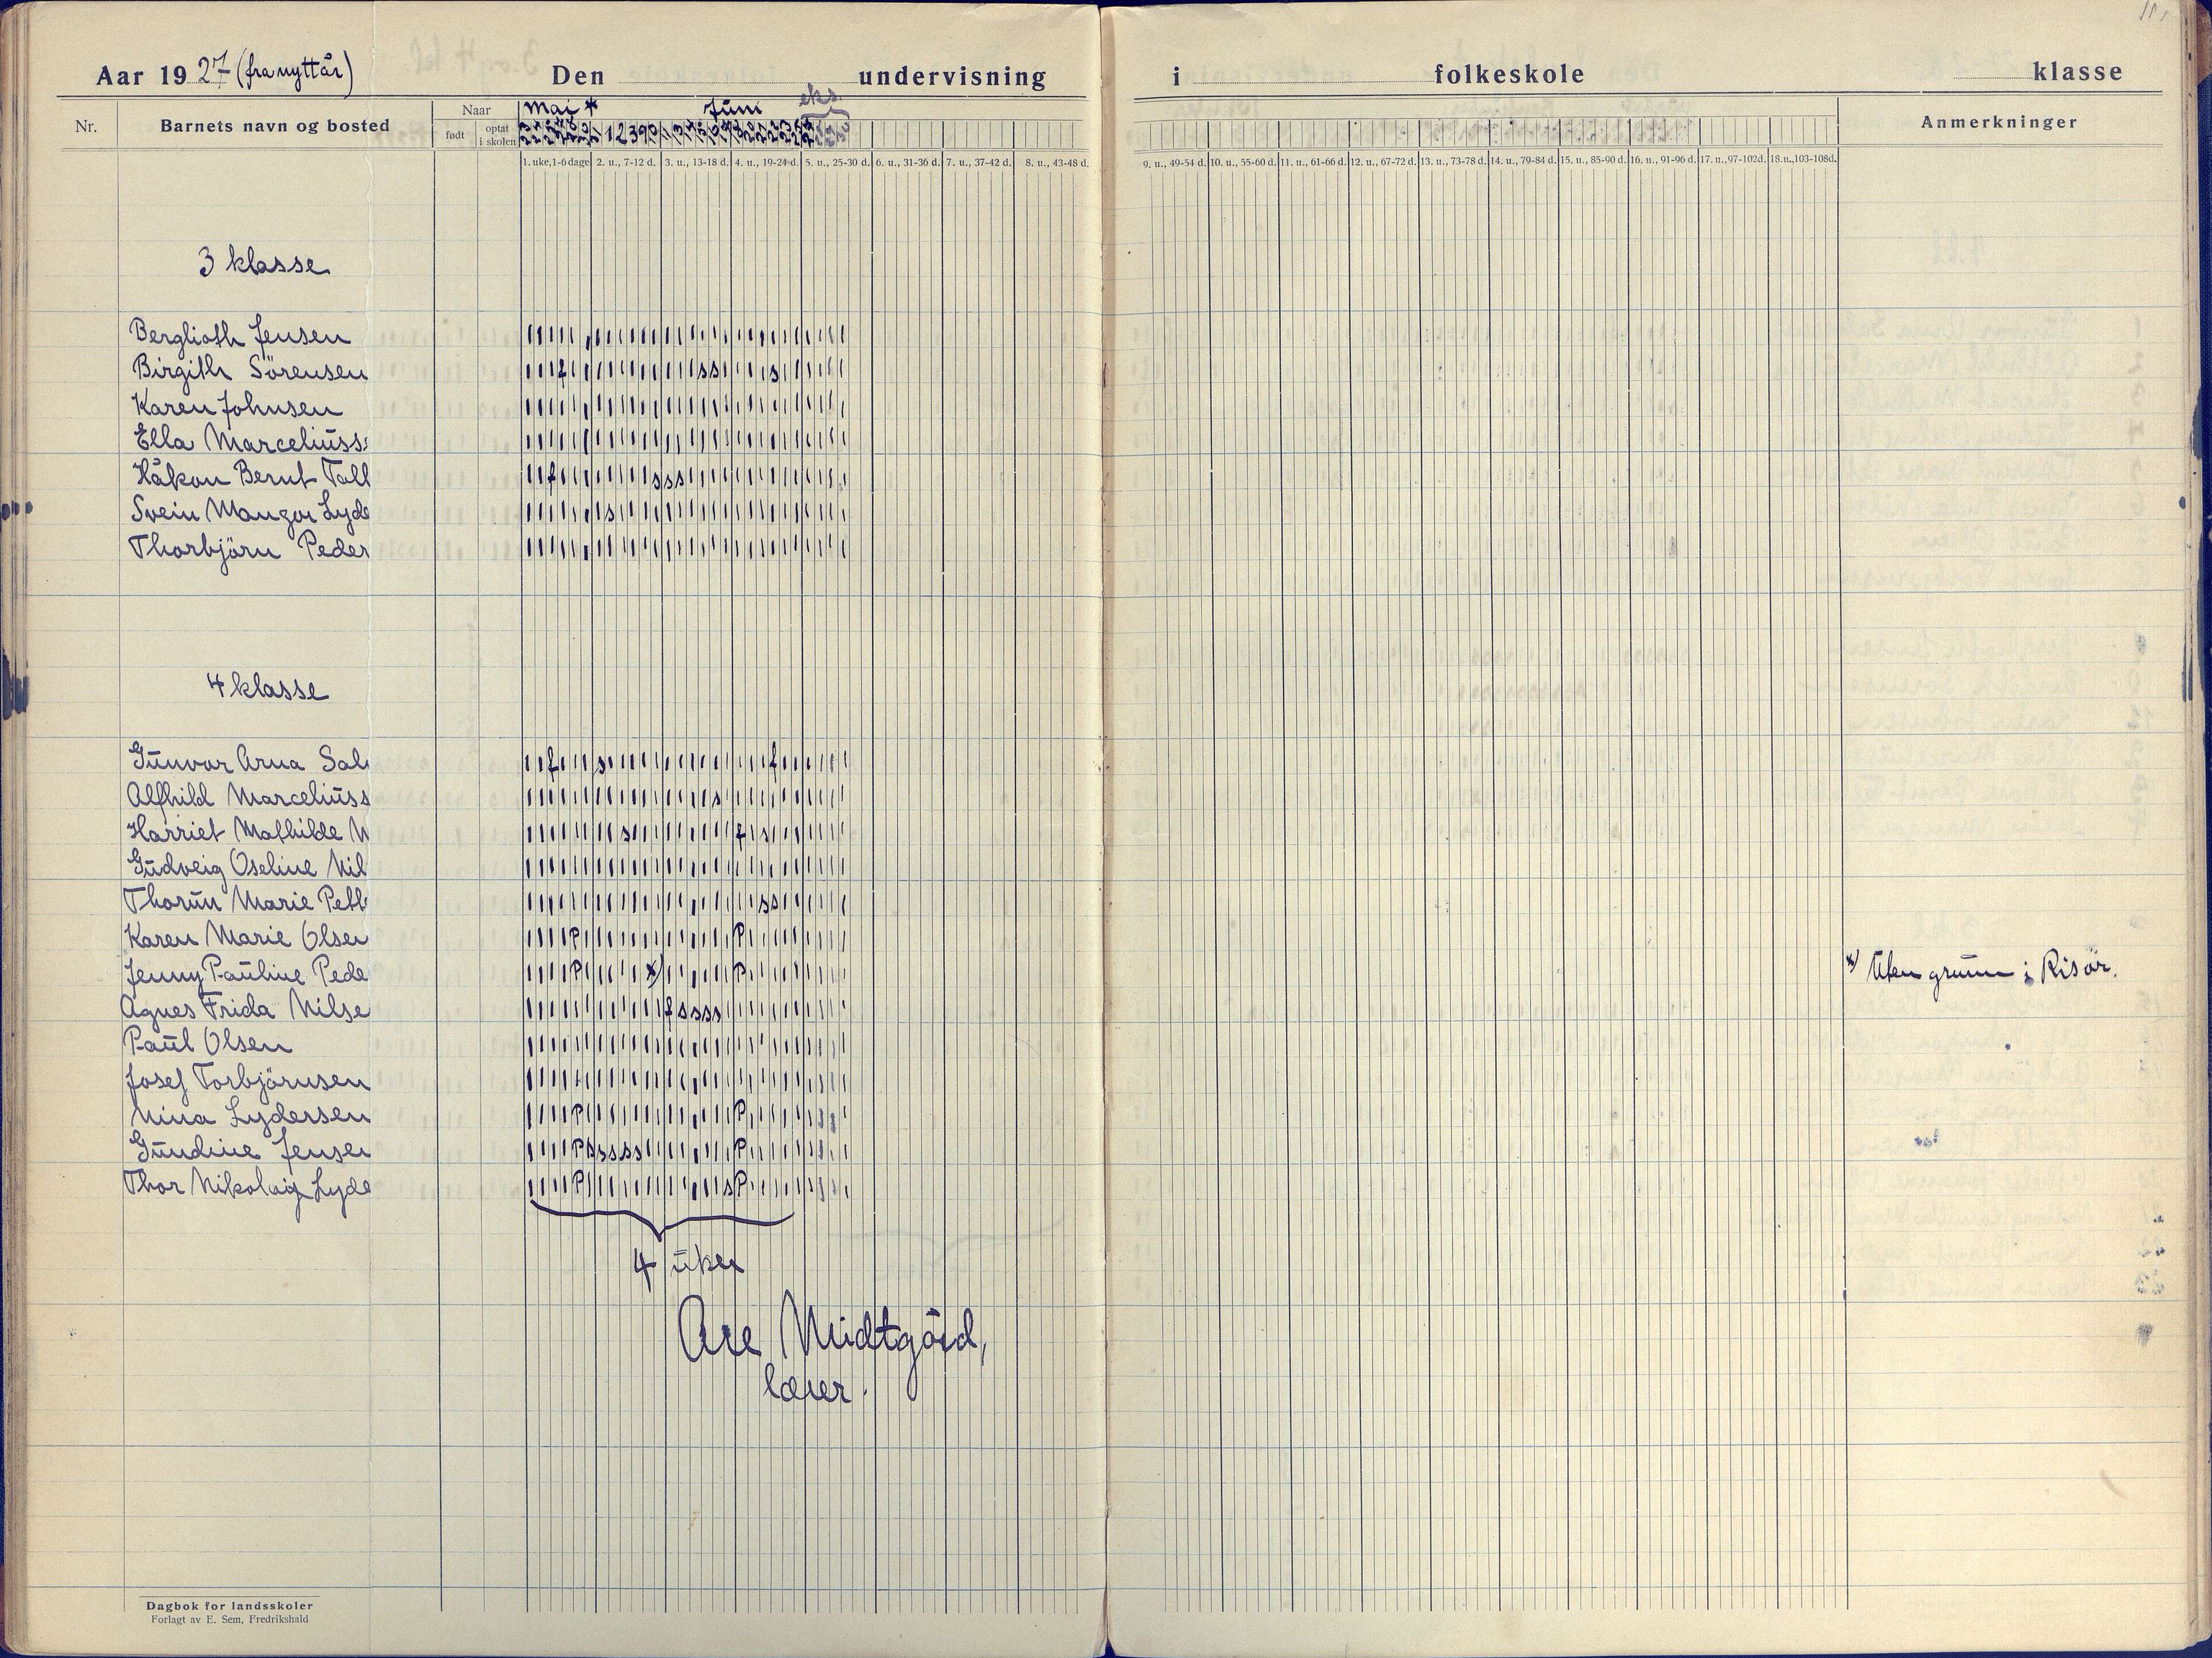 Aar 1927 (fra nyttår) Den undervisning i folkeskole klasse
Nr. Barnets navn og bosted Naar født optat i skolen Mai * Juni eks. Anmerkninger
1. uke, 1-6 dage 2. u., 7-12 d. 3. u., 13-18 d. 4. u., 19-24 d. 5. u., 25-30 d. 6. u., 31-36 d. 7. u., 37-42 d. 8. u., 43-48 d. 9. u., 49-54 d. 10. u., 55-60 d. 11. u., 61-66 d. 12. u., 67-72 d. 13. u., 73-78 d. 14. u., 79-84 d. 15. u., 85-90 d. 16. u., 91-96 d. 17. u., 97-102d. 18.u.,103-108d.
3 klasse
Berglioth Jensen
Birgith Sörensen f s s s
Karen Johnsen
Ella Marceliuss
Håkon Bernt Tall f s s s
Svein Mangor Lyde s
Thorbjörn Peder
4 klasse
Gunvor Arna Sal f s f
Alfhild Marceliuss s
Harriet Mathilde s f s
Gudveig Oseline Nil
Thorun Marie Pett s s
Karen Marie Olsen P P
Jenny Pauline Pede P x) P x) Uten grunn i Risör.
Agnes Frida Nilse f s s s s
Paul Olsen
Josef Torbjörnsen
Nina Lydersen P P
Gundine Jensen P s s s s s P
Thor Nikolaij Lyde P s P
4 uker
Are Midtgård,
lærer.
Dagbok for landsskoler
Forlagt av E. Sem, Fredrikshald